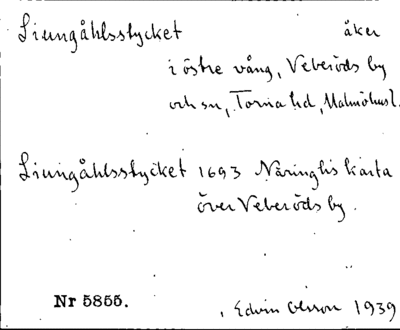 Liungåhlsstycket åker
i östre vång, Veberöds by
och sn, Torna hd, Malmöhusl.
Liungåhlsstycket 1693 Näringhs karta
över Veberöds by.
Nr 5855.
Edvin Olsson 1939